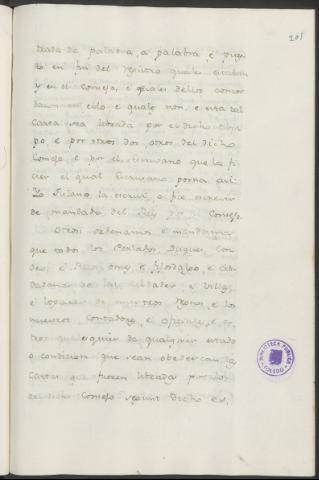 201
tada de palabra, a palabra, é pues
to en fin del registro quales estaban
y en el Consejo, é quales dellos concor
daron en ello e quales non, e esta tal
Carta sea librada por el dicho Obis
po, e por otros dos otros del dicho
Consejo e por el Escrivano que la fi
cier el qual Escrivano porna así:
Yo Fulano la escriví, o fice escrevir
de mandado del Rey del Consejo
Otrosí ordenamos e mandamos
que todos los Perlados, Duques, Con
des, é Ricos omes, e fijosdalgo, e cib
dadanos de las cibdades e Villas,
é logares de nuestros Regnos, e los
nuestros Contadores, e Oficiales, e o
tros quales quier de qualquier estado
o condicion que sean obedescan las
Cartas que fueren libradas por los
del dicho Consejo segunt dicho es,
BIBLIOTECA PUBLICA
TOLEDO